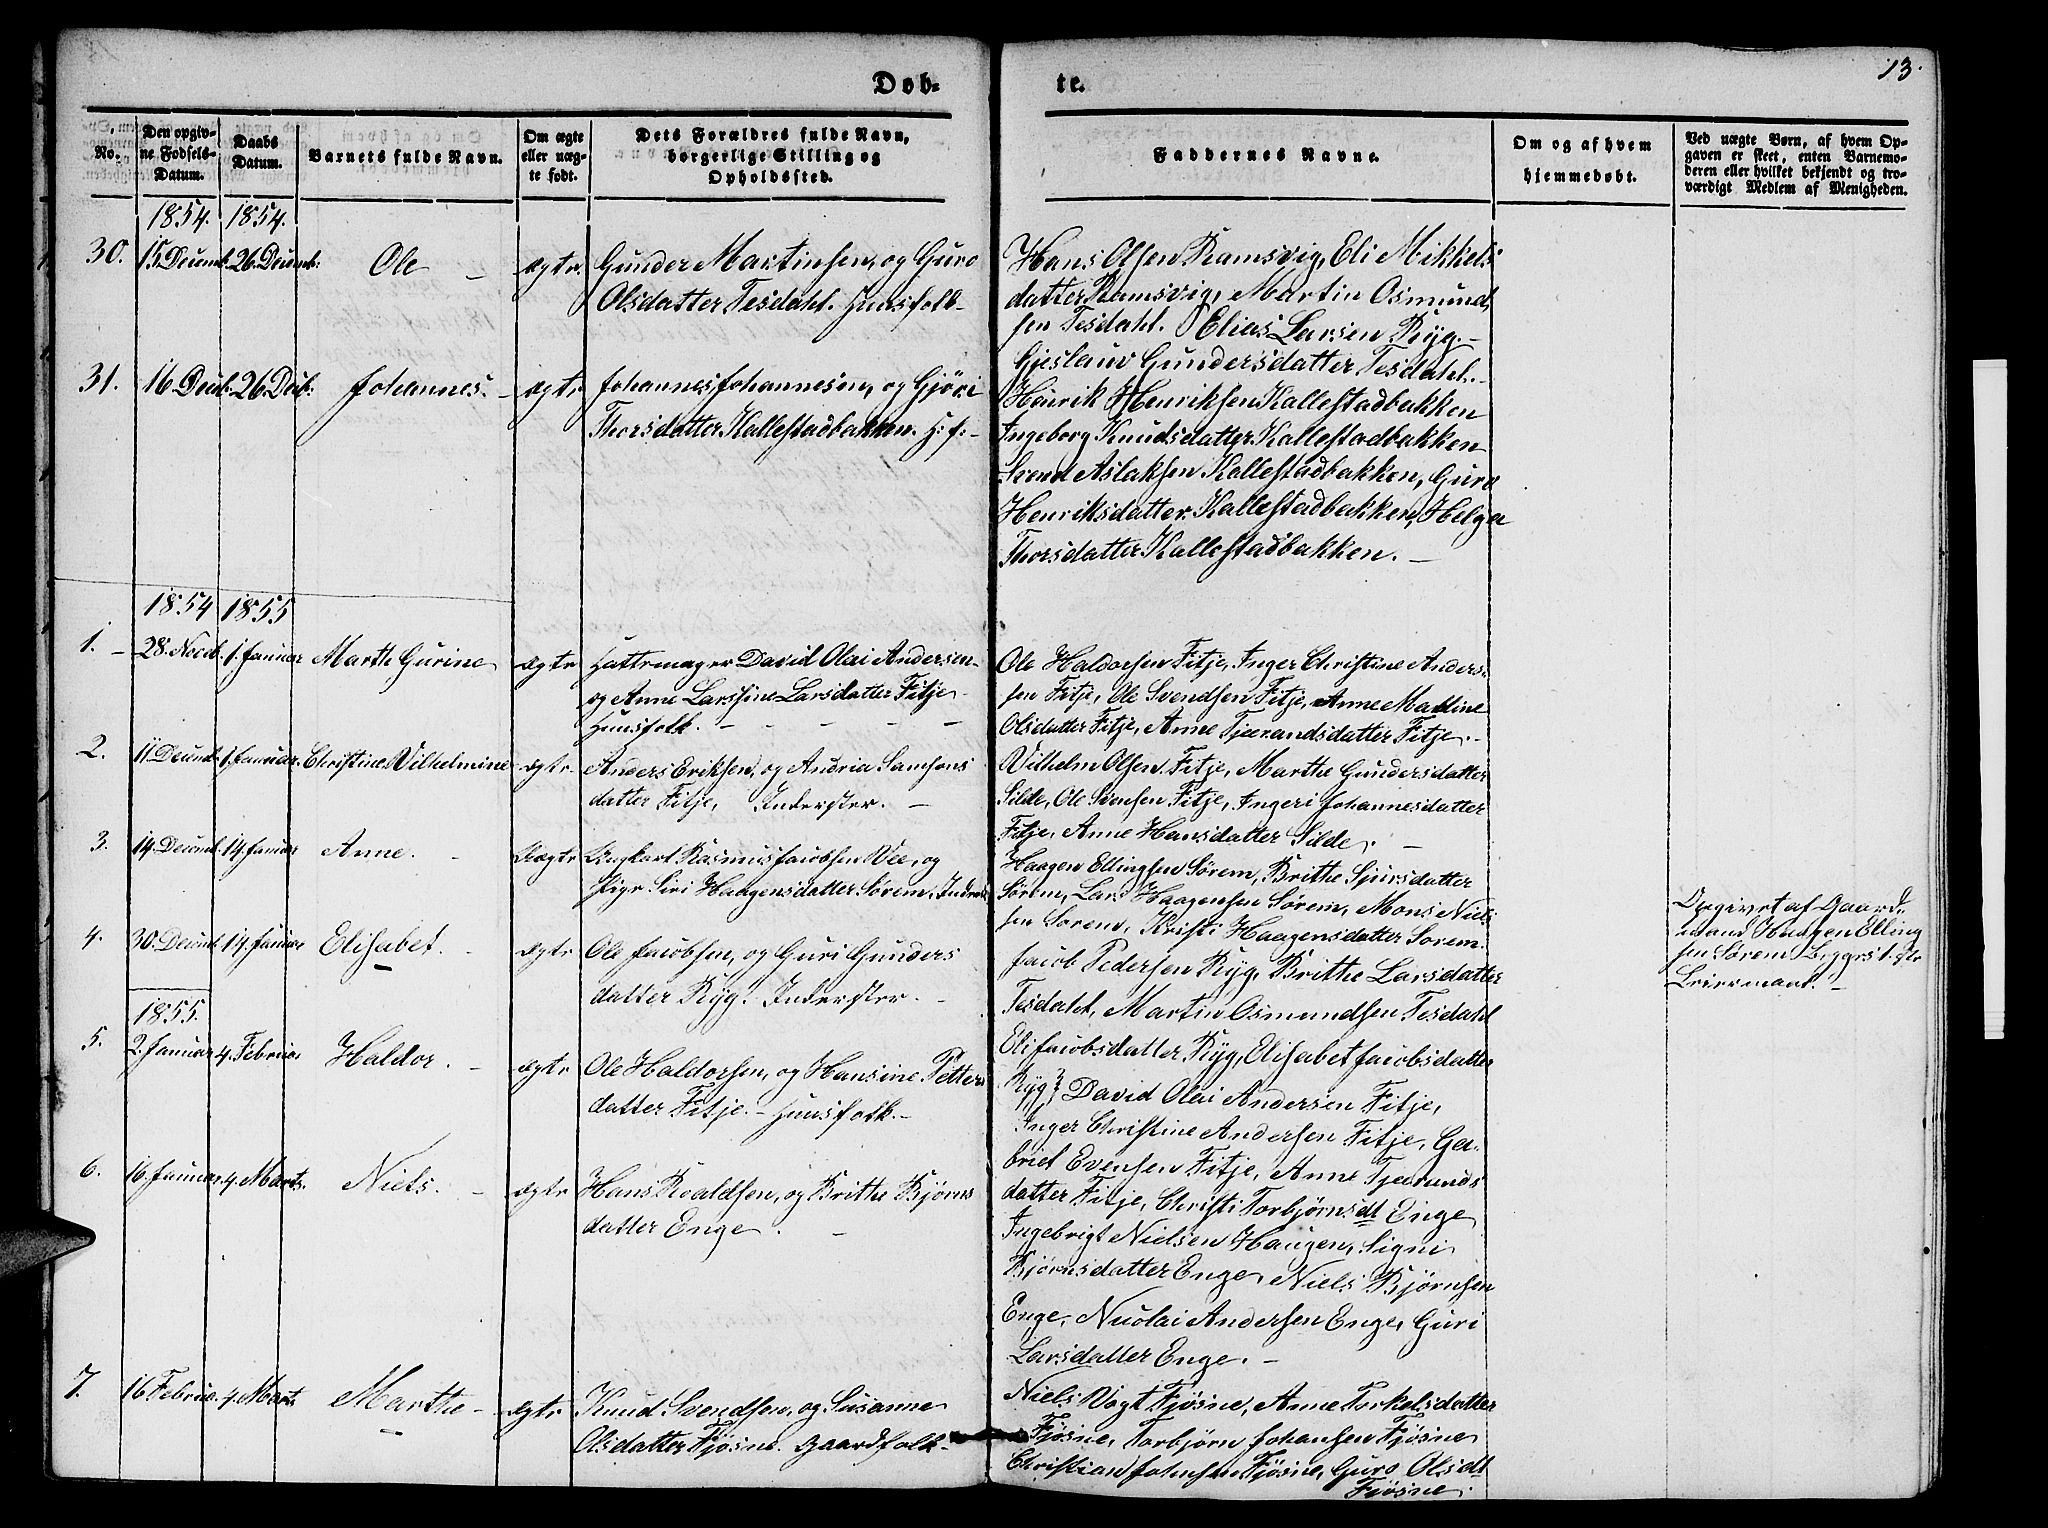 Døb-
te.
13.
No.
Den opgiv-
ne Fødsels-
Datum.
Daabs
Datum.
Barnets fulde Navn.
Om ægte
eller uæg-
te født.
Dets Forældres fulde Navn,
borgerlige Stilling og
Opholdssted.
Faddernes Navne.
Om og af hvem
hjemmedøbt.
Ved uægte Børn, af hvem Op-
gaven er skeet, enten Barnemo-
deren eller hvilket bekjendt og tro-
værdigt Medlem af Menigheden.
1854. 1854.
30. 15 Decemb. 26. Decemb: Ole - ægte Gunder Martinsen, og Guro
Olsdatter Tesdahl. Huusfolk-
Hans Olsen Ramsvig, Eli Mikkels
datter Ramsvig, Martin Osmund
sen Tesdahl. Elias Larsen Ryg.-
Gjeslauv Gundersdatter Tesdahl.-
31. 16. Decb. 26. Decb: Johannes. - ægte Johannes Johannesen, og Gjöri
Thorsdatter Kallestadbakken. H: f: -
Heinrik Henriksen Kallestadbakken
Ingeborg Knudsdatter Kallestadbakken
Svend Aslaksen Kallestadbakken, Guro
Henriksdatter Kallestadbakken, Helga
Thorsdatter Kallestadbakken. -
1854 1855
1. - 28. Novb. 1. Januar Marthe Gurine ægte Hattemager David Olai Andersen
og Anne Larssine Larsdatter Fitje
Huusfolk. - - - -
Ole Haldorsen Fitje, Inger Christine Anders-
sen Fitje, Ole Svendsen Fitje, Anne Malline
Olsdatter Fitje, Anne Tjerandsdatter Fitje.-
2. 11 Decemb. 1. Januar. Christine Vilhelmine ægte Anders Eriksen, og Andria Samsons
datter Fitje, Inderster. -
Vilhelm Olsen Fitje, Marthe Gundersdatter
Silde, Ole Svensen Fitje, Ingeri Johannesdatter
Fitje, Anne Hansdatter Silde. -
3. 14. Decemb. 14. Januar Anne. - Uægte Ungkarl Rasmus Jacobsen Vee, og
Pige Siri Haagensdatter Sørem,
Haagen Ellingsen Sørem, Brithe Sjursdatter
Sörem, Lars Haagensen Sørem, Mons Niel
sen Sorem, Kristi Haagensdatter Sorem.
Opgivet af Gaard-
mand Haagen Elling
sen Sørem
Leiermaal. -
4. 30. Decemb. 14. Januar Elisabet. - ægte Ole Jacobsen, og Guri Gunders
datter Ryg. Inderster. -
Jacob Pedersen Ryg, Brithe Larsdatter
Tesdahl, Martin Osmundsen Tesdahl
Eli Jacobsdatter Ryg, Elisabet Jacobsdatter
Ryg}
1855.
5. 2. Januar 4. Februar Haldor. - ægte Ole Haldorsen, og Hansine Petters
datter Fitje. - Huusfolk.-
David Olai Andersen Fitje,
Inger Christine Andersen Fitje, Ga-
briel Evensen Fitje, Anne Tjerands
datter Fitje,
6. 16. Januar 4. Marts. Niels. - ægte Hans Roaldsen, og Brithe Bjørns
datter Enge. -
Christi Torbjørnsdt Enge
Ingebrigt Nielsen Haugen, Signi
Bjørnsdatter Enge, Niels Bjørnsen
Enge, Nicolai Andersen Enge, Guri
Larsdatter Enge. -
7. 16 Februar. 4. Mart. Marthe - ægte Knud Svendsen, og Susanne
Olsdatter Fjøsne. Gaardfolk-
Niels Vogt Fjøsne, Anne Torkelsdatter
Fjøsne, Torbjörn Johansen Fjøsne
Christian Johnsen Fjøsne, Guro Olsdt
Fjøsne.